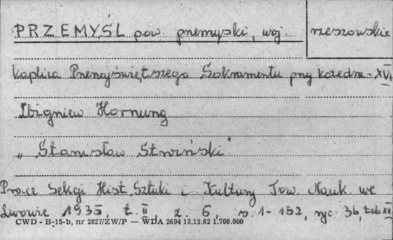 PRZEMYŚL pow. przemyski, woj. rzeszowskie
Kaplica Przenajświętszego Sakramentu przy katedrze - XVI
Zbigniew Hornung
"Stanisław Stroiński"
Prace Sekcji Hist. Sztuki i Kultury Tow. Nauk. we
Lwowie 1935, t. II z. 6, s. 1-152, ryc. 36, tab. XX
CWD - B-15-b, nr 2827/ZW/P — WDA 2694 13.12.62 1.700.000